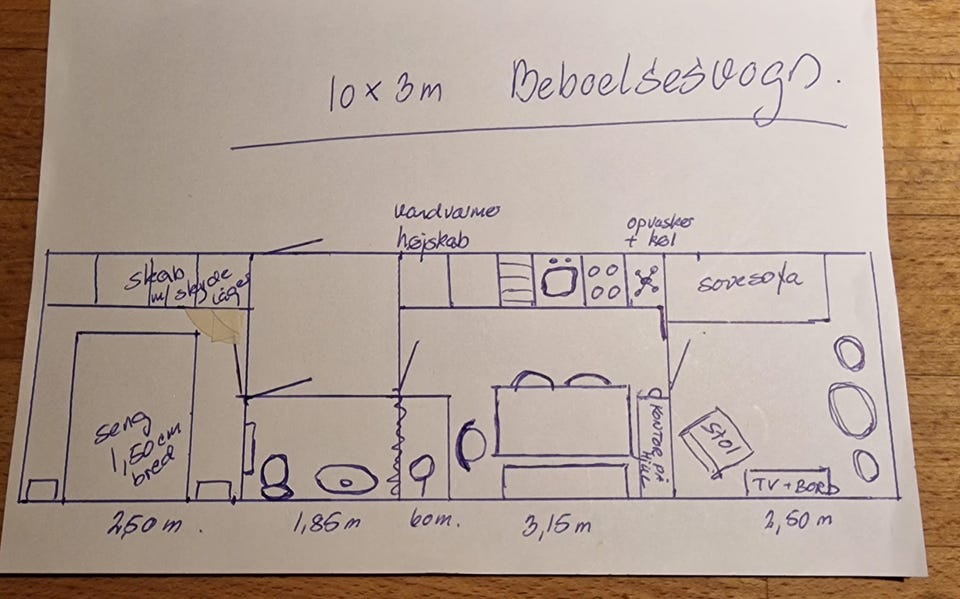 10 x 3m Beboelsesvogn.
vandvarmer
højskab
opvasker
+ køl
skab
m/ skyde
låger
sovesofa
seng
1,50 cm
bred
KONTOR på
HJUL
stol
TV + BORD
2,50 m.
1,85 m
60 m.
3,15 m
2,50 m